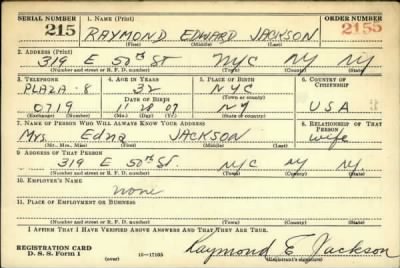 SERIAL NUMBER 1. NAME (Print) ORDER NUMBER
215 RAYMOND EDWARD JACKSON 2155
(First) (Middle) (Last)
2. ADDRESS (Print)
319 E 50TH ST NYC NY NY
(Number and street or R. F. D. number) (Town) (County) (State)
3. TELEPHONE 4. AGE IN YEARS 5. PLACE OF BIRTH 6. COUNTRY OF CITIZENSHIP
PLAZA-8 32 NYC
DATE OF BIRTH (Town or county)
0719 11 28 07 NY USA
(Exchange) (Number) (Mo.) (Day) (Yr.) (State or country)
7. NAME OF PERSON WHO WILL ALWAYS KNOW YOUR ADDRESS 8. RELATIONSHIP OF THAT PERSON
Mrs. Edna JACKSON wife
(Mr., Mrs., Miss) (First) (Middle) (Last)
9. ADDRESS OF THAT PERSON
319 E 50th St. NYC NY NY
(Number and street or R. F. D. number) (Town) (County) (State)
10. EMPLOYER'S NAME
none
11. PLACE OF EMPLOYMENT OR BUSINESS
(Number and street or R. F. D. number) (Town) (County) (State)
I AFFIRM THAT I HAVE VERIFIED ABOVE ANSWERS AND THAT THEY ARE TRUE.
REGISTRATION CARD
D. S. S. Form 1 (over) 16—17105 Raymond E Jackson
(Registrant's signature)